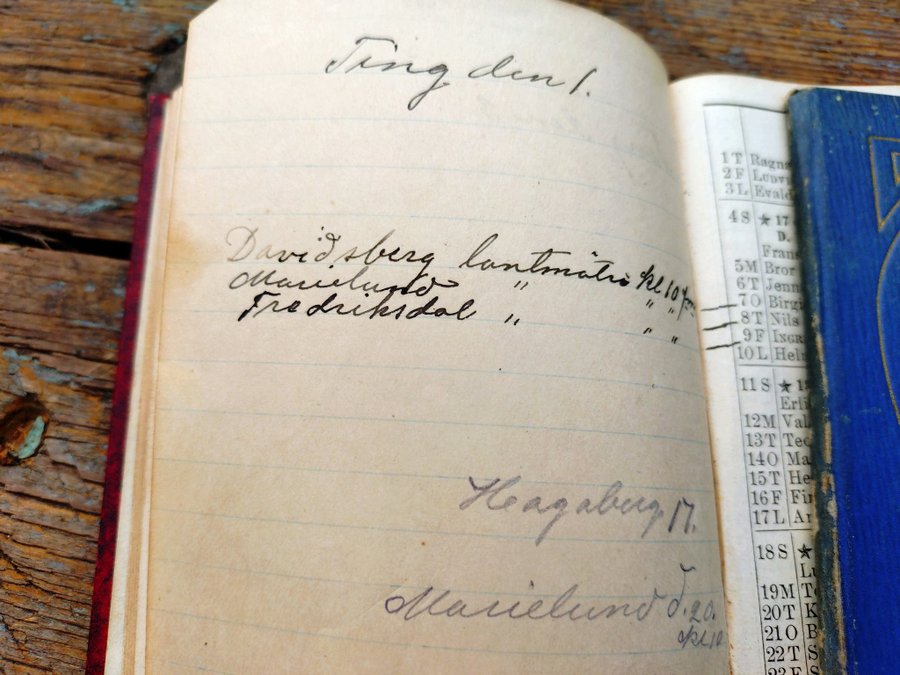 Ting den 1.
Davidsberg lantmätr. kl 10 fm
Marielund " " "
Fredriksdal " " "
Hagaberg 17.
Marielund d. 20.
kl 10
1 T Ragna
2 F Ludvi
3 L Evald
4 S ★ 17
D.
Frans
5 M Bror
6 T Jenn
7 O Birgi
8 T Nils
9 F Ingr
10 L Heln
11 S ★ 18
Erli
12 M Val
13 T Teo
14 O Ma
15 T He
16 F Fin
17 L An
18 S ★
Lu
19 M To
20 T K
21 O B
22 T S
23 F S